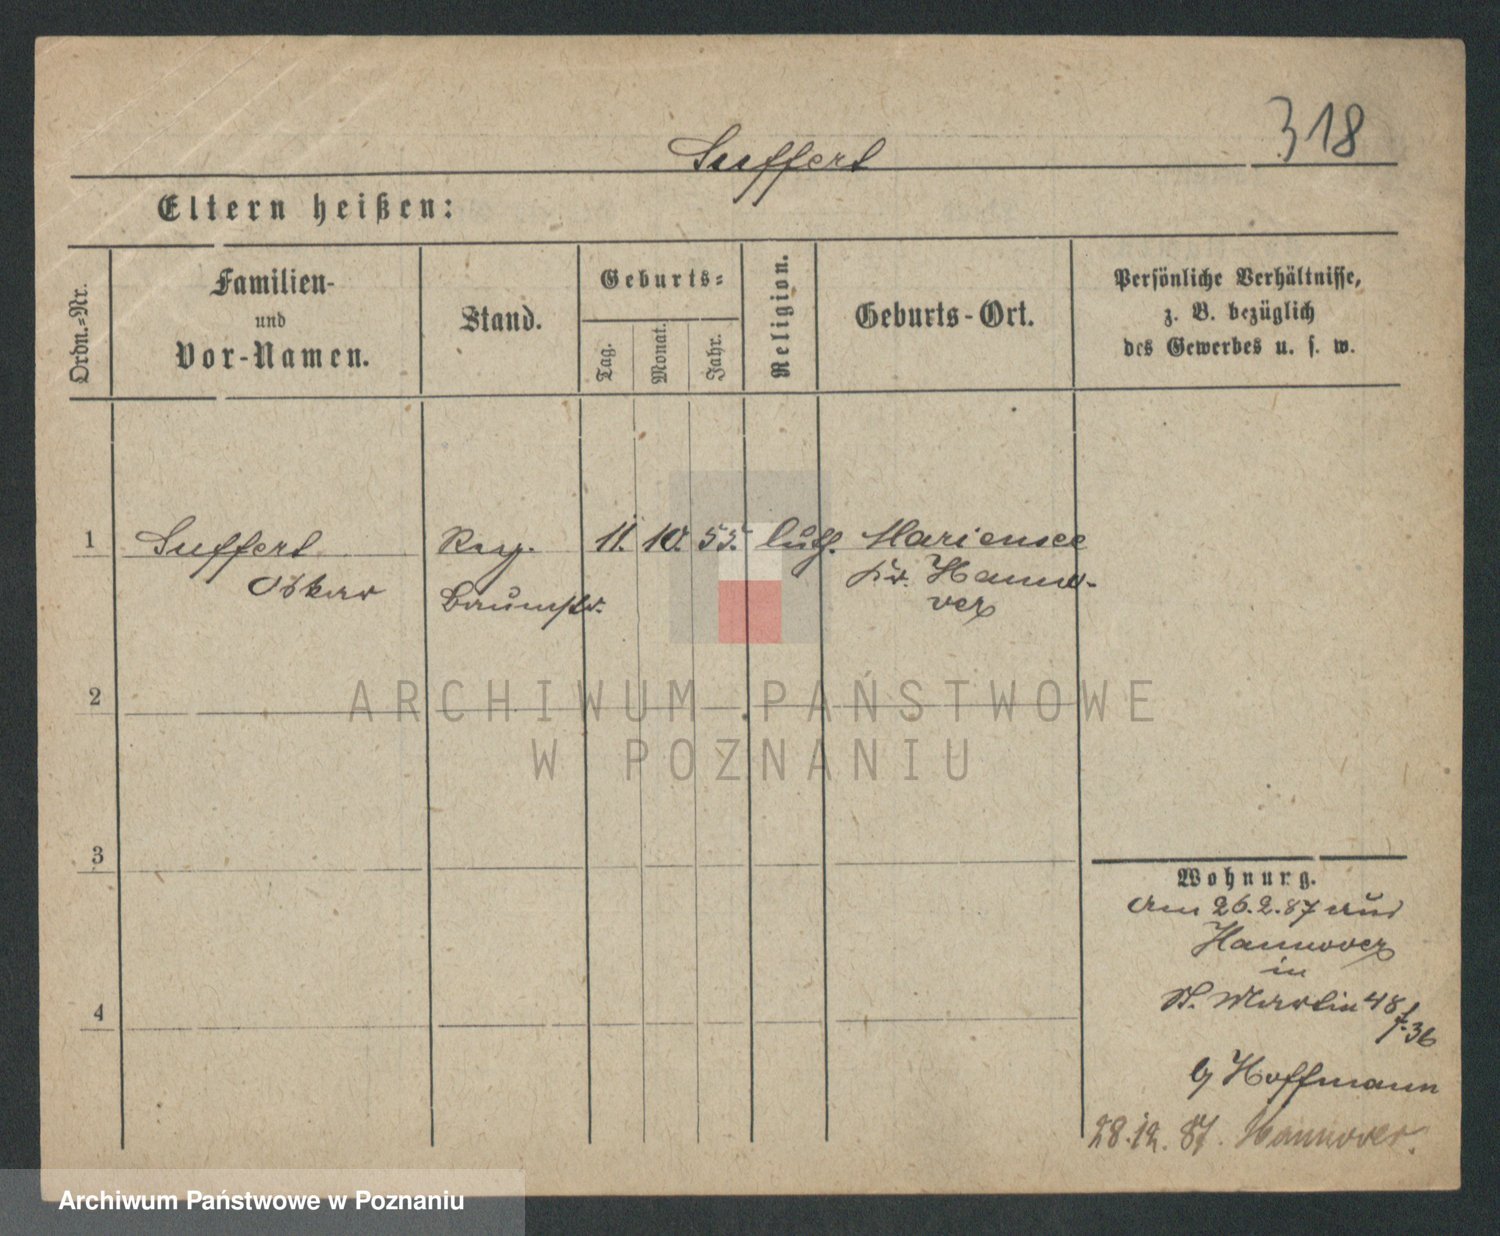 318
Suffert
Eltern heißen:
Ordn.-Nr.
Familien-
und
Vor-Namen.
Stand.
Geburts-
Tag.
Monat.
Jahr.
Religion.
Geburts-Ort.
Persönliche Verhältnisse,
z. B. bezüglich
des Gewerbes u. s. w.
1 Suffert Reg. 11. 10. 55. luth. Mariensee
Oskar Baumstr. Kr. Hanno-
ver
2
3
4
Wohnung.
Am 26.2.87 aus
Hannover
in
St. Martin 48
36
Hoffmann
28.12.87. Hannover.
ARCHIWUM PAŃSTWOWE
W POZNANIU
Archiwum Państwowe w Poznaniu